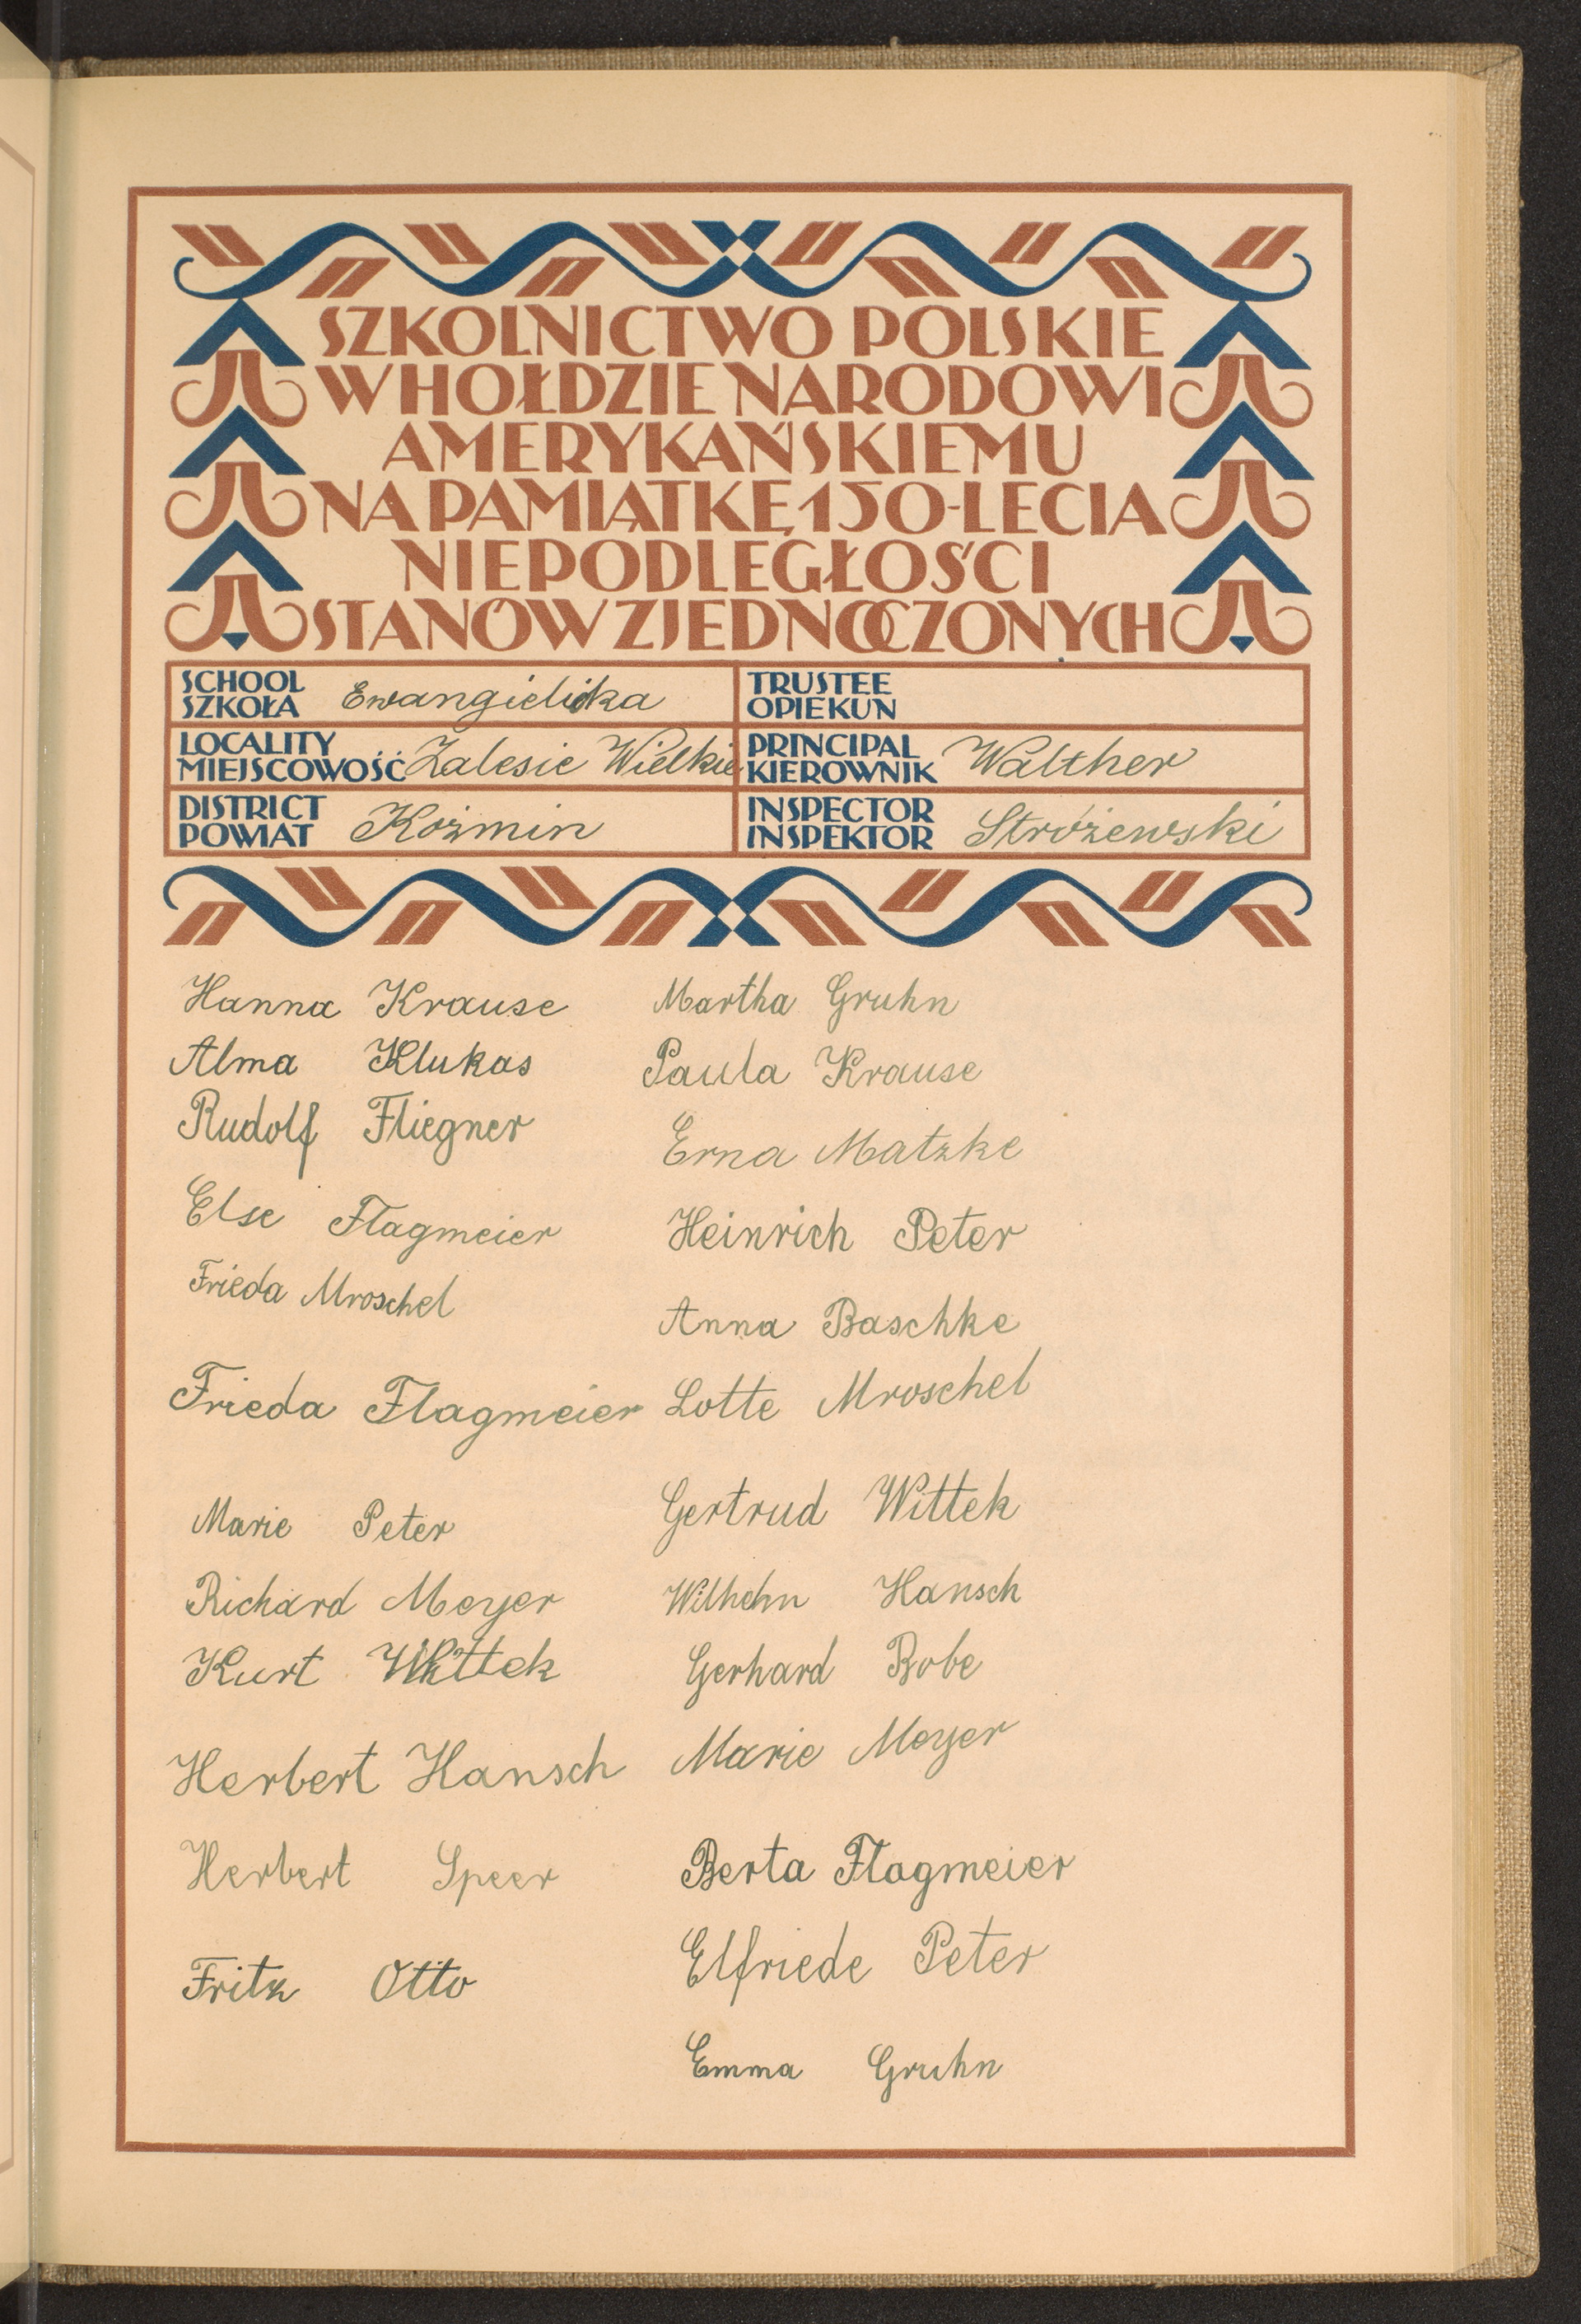 SZKOLNICTWO POLSKIE
W HOŁDZIE NARODOWI
AMERYKAŃSKIEMU
NA PAMIĄTKĘ 150-LECIA
NIEPODLEGŁOŚCI
STANÓW ZJEDNOCZONYCH
SCHOOL
SZKOŁA Ewangielicka
TRUSTEE
OPIEKUN
LOCALITY
MIEJSCOWOŚĆ Zalesie Wielkie
PRINCIPAL
KIEROWNIK Walther
DISTRICT
POWIAT Koźmin
INSPECTOR
INSPEKTOR Stróżewski
Hanna Krause
Alma Klukas
Rudolf Fliegner
Else Flagmeier
Frieda Mroschel
Frieda Flagmeier
Marie Peter
Richard Meyer
Kurt Wittek
Herbert Hansch
Herbert Speer
Fritz Otto
Martha Gruhn
Paula Krause
Erna Matzke
Heinrich Peter
Anna Baschke
Lotte Mroschel
Gertrud Wittek
Wilhelm Hansch
Gerhard Bobe
Marie Meyer
Berta Flagmeier
Elfriede Peter
Emma Gruhn